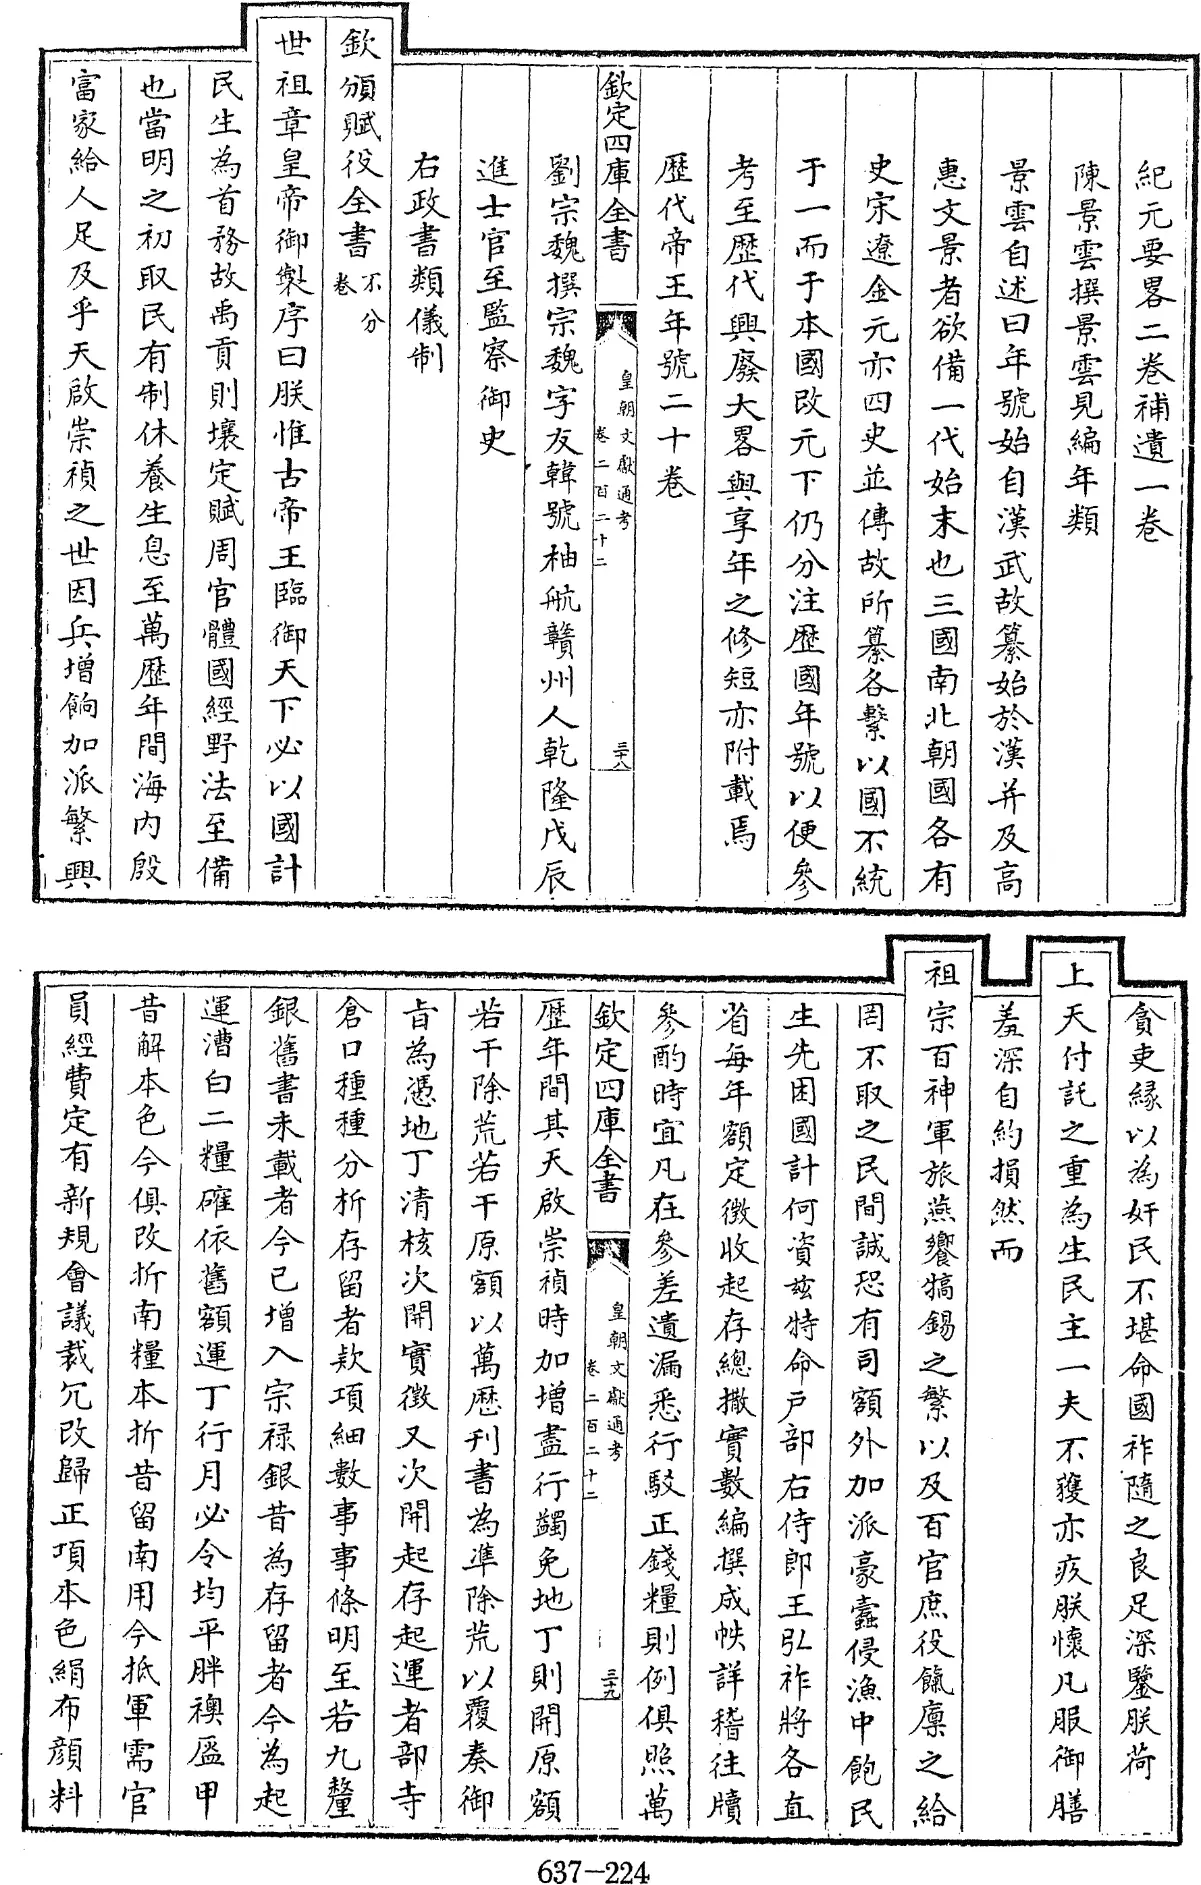 紀元要畧二卷補遺一卷
陳景雲撰景雲見編年類
景雲自述曰年號始自漢武故纂始於漢并及高
惠文景者欲備一代始末也三國南北朝國各有
史宋遼金元亦四史並傳故所纂各繫以國不統
于一而于本國改元下仍分注歷國年號以便參
考至歷代興廢大畧與享年之修短亦附載焉
歷代帝王年號二十卷
欽定四庫全書
皇朝文獻通考
卷二百二十二
三十八
劉宗魏撰宗魏字友韓號柚航贛州人乾隆戊辰
進士官至監察御史
右政書類儀制
欽頒賦役全書不分卷
世祖章皇帝御製序曰朕惟古帝王臨御天下必以國計
民生為首務故禹貢則壤定賦周官體國經野法至備
也當明之初取民有制休養生息至萬歷年間海内殷
富家給人足及乎天啟崇禎之世因兵增餉加派繁興
貪吏緣以為奸民不堪命國祚隨之良足深鑒朕荷
上天付託之重為生民主一夫不獲亦疚朕懷凡服御膳
羞深自約損然而
祖宗百神軍旅燕饗犒錫之繁以及百官庶役餼廩之給
罔不取之民間誠恐有司額外加派豪蠹侵漁中飽民
生先困國計何資兹特命戸部右侍郎王弘祚將各直
省每年額定徵收起存總撒實數編撰成帙詳稽往牘
參酌時宜凡在參差遺漏悉行駁正錢糧則例俱照萬
欽定四庫全書
皇朝文獻通考
卷二百二十二
三十九
歷年間其天啟崇禎時加增盡行蠲免地丁則開原額
若干除荒若干原額以萬歷刊書為準除荒以覆奏御
旨為憑地丁清核次開實徵又次開起存起運者部寺
倉口種種分析存留者款項細數事事條明至若九釐
銀舊書未載者今已增入宗禄銀昔為存留者今為起
運漕白二糧確依舊額運丁行月必令均平胖襖盔甲
昔解本色今俱改折南糧本折昔留南用今抵軍需官
員經費定有新規會議裁冗改歸正項本色絹布顔料
637-224